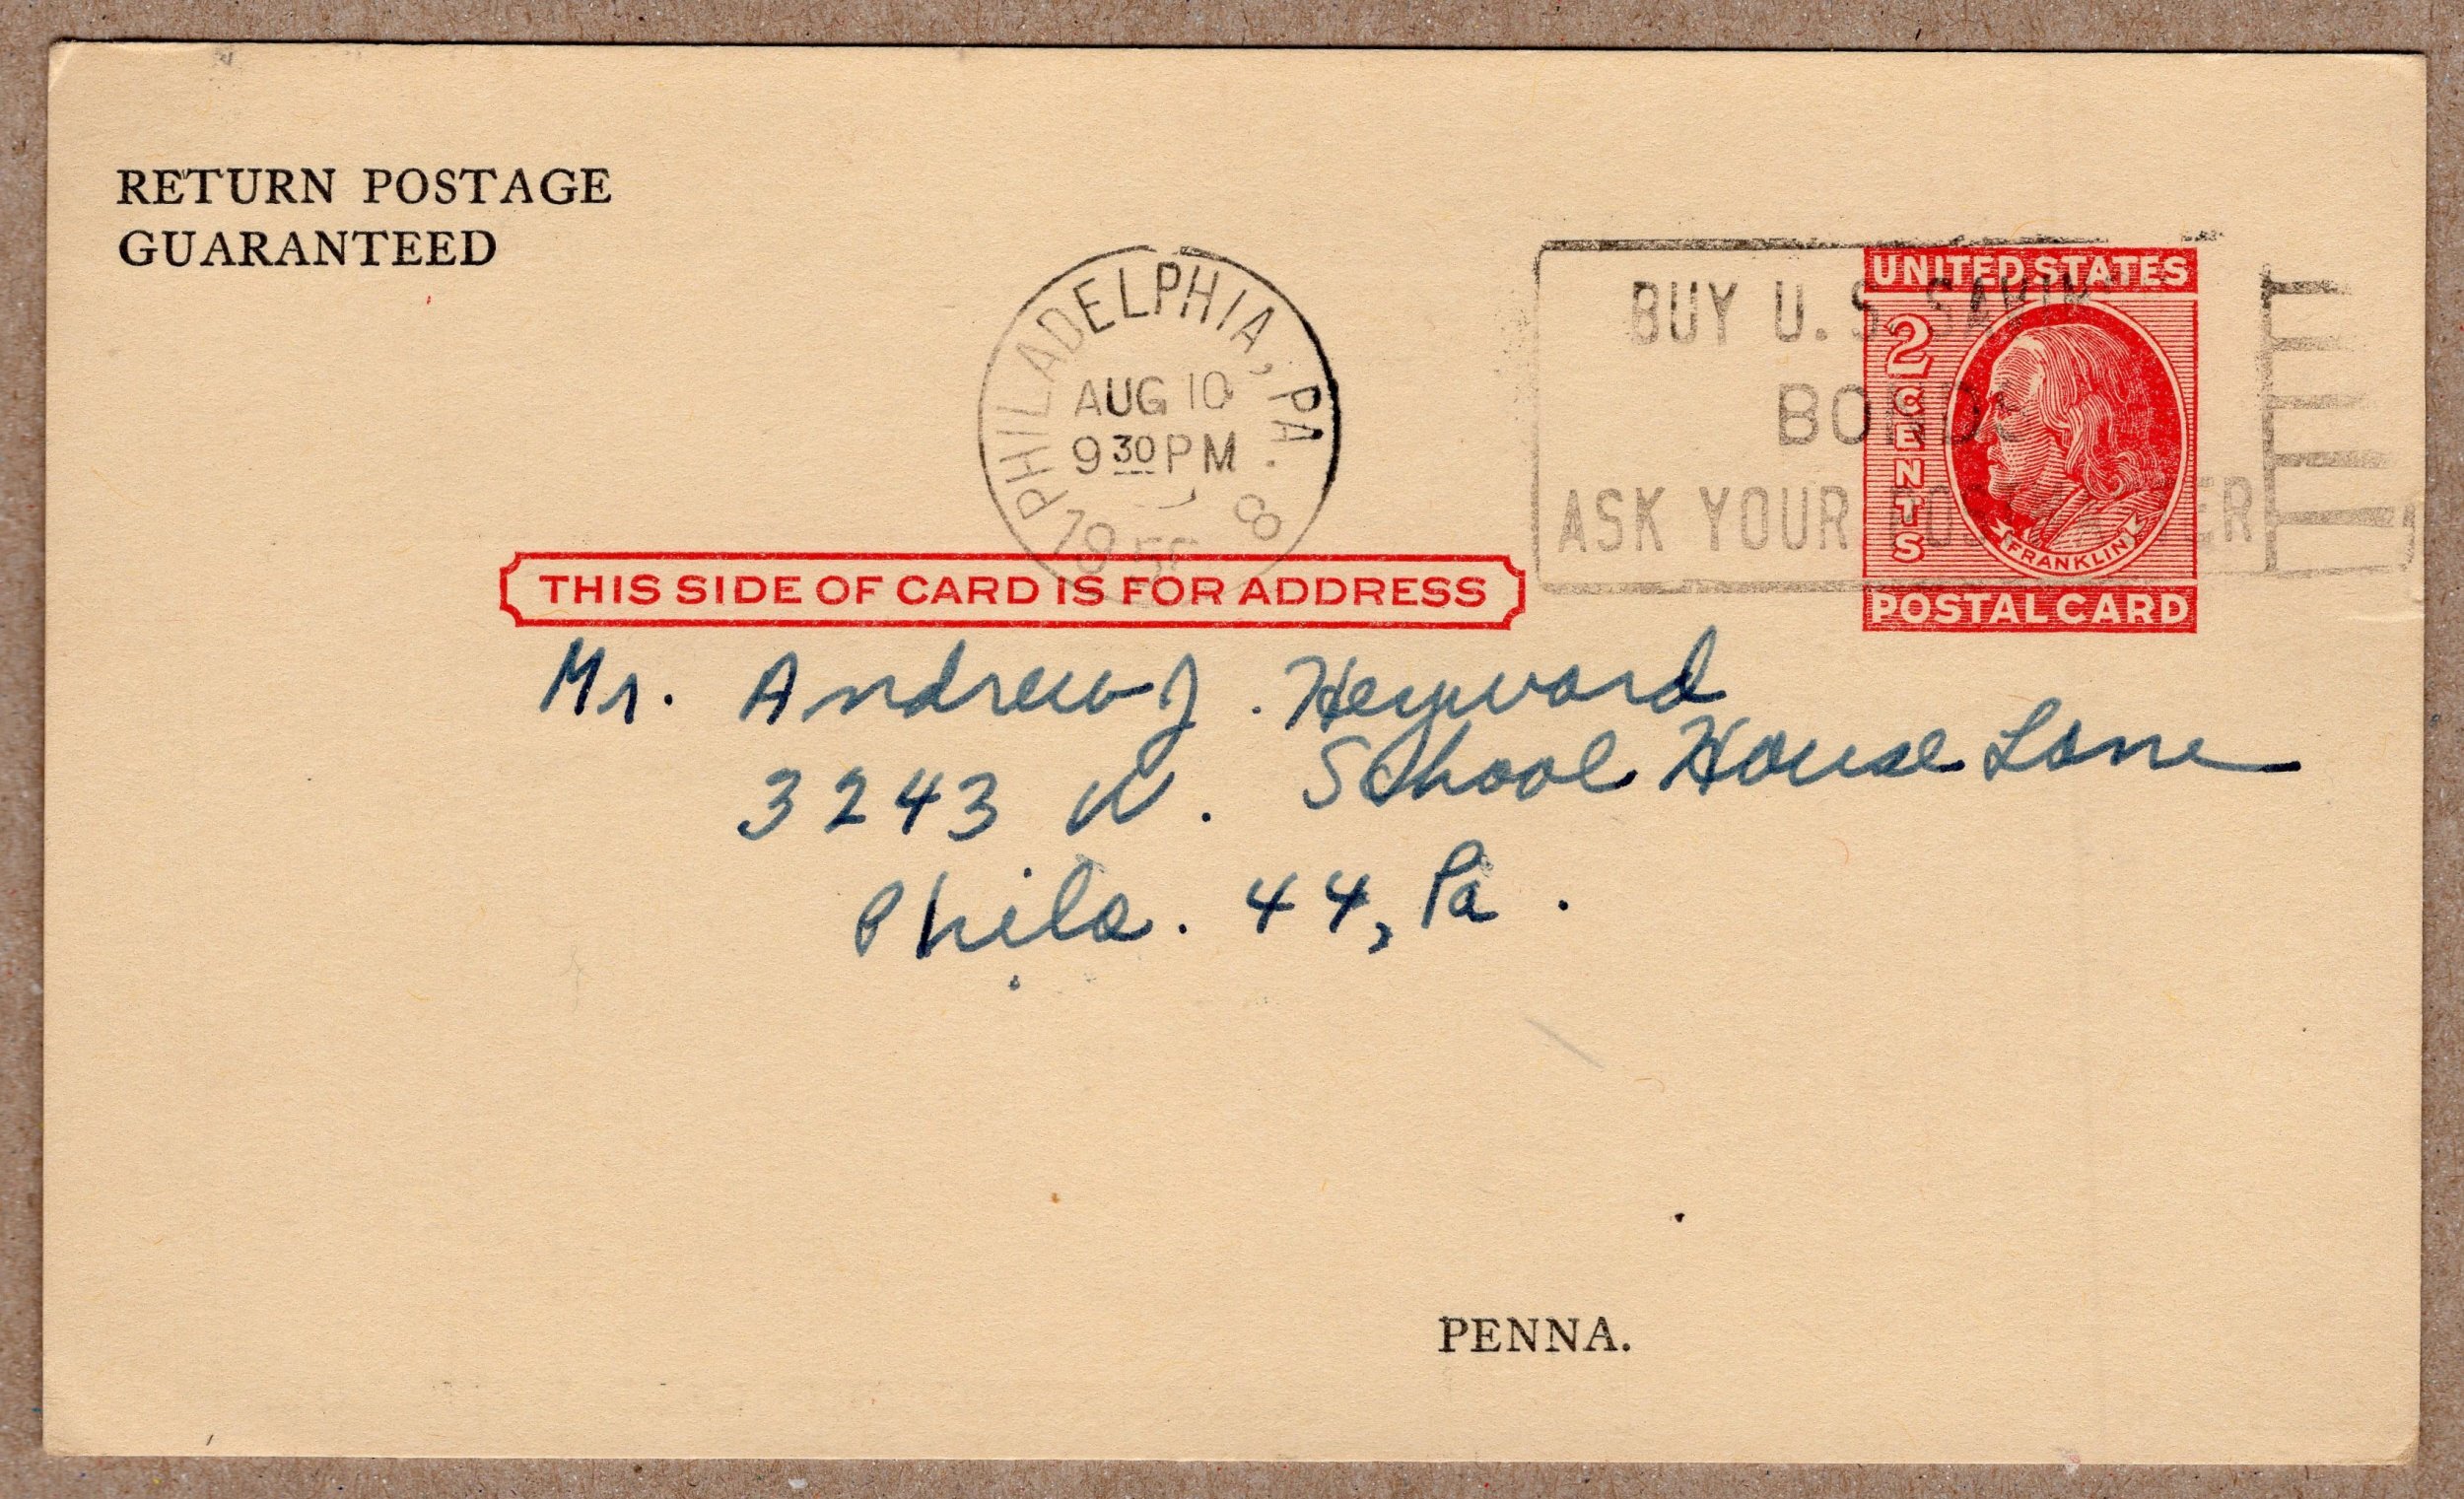 RETURN POSTAGE
GUARANTEED
PHILADELPHIA, PA.
AUG 10
9 30 PM
8
BUY U.S.
BONDS
ASK YOUR
UNITED STATES
2 CENTS
FRANKLIN
POSTAL CARD
THIS SIDE OF CARD IS FOR ADDRESS
Mr. Andrew J. Heyward
3243 W. School House Lane
Phila. 44, Pa.
PENNA.